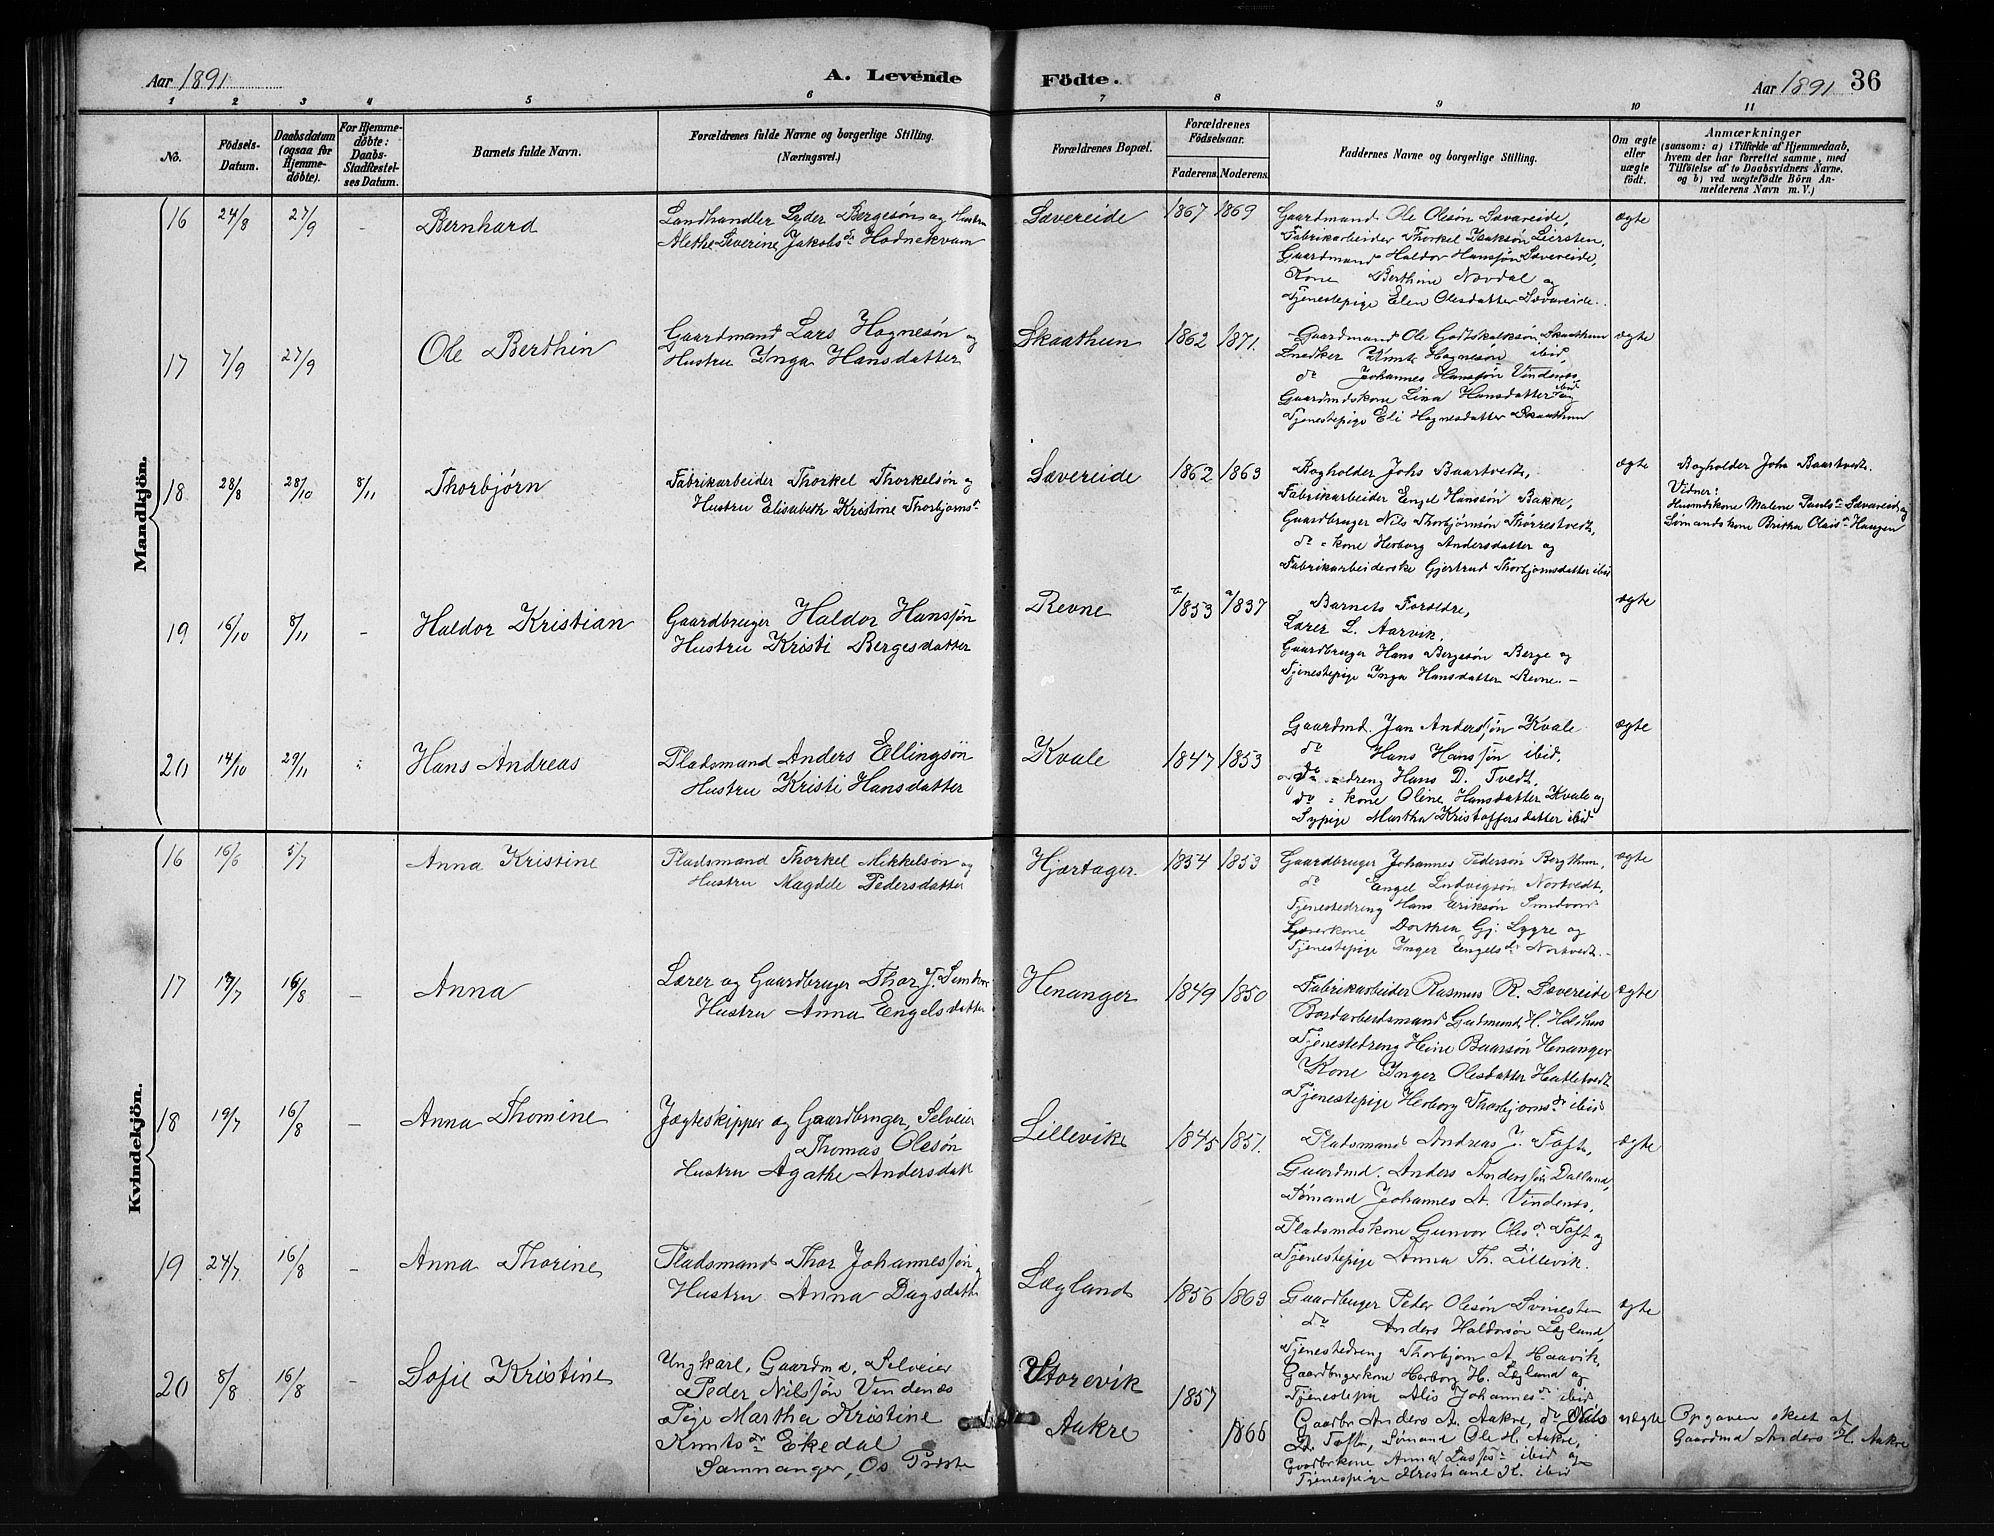 Aar 1891
A. Levende
Födte.
Aar 1891
36
1 2 3 4 5 6 7 8 9 10 11
No.
Födsels-
Datum.
Daabsdatum
(ogsaa for
Hjemme-
döbte).
For Hjemme-
döbte:
Daabs-
Stadfæstel-
ses Datum.
Barnets fulde Navn.
Forældrenes fulde Navne og borgerlige Stilling.
(Næringsvei.)
Forældrenes Bopæl.
Forældrenes
Födselsaar.
Faderens. Moderens.
Faddernes Navne og borgerlige Stilling.
Om ægte
eller
uægte
födt.
Anmærkninger
(saasom: a) i Tilfælde af Hjemmedaab,
hvem der har forrettet samme, med
Tilföielse af to Daabsvidners Navne.
og b) ved uægtefödte Börn An-
melderens Navn m. V.)
Mandkjön.
16 24/8 27/9 - Bernhard
Landhandler Lyder Bergesøn og Hustru
Alethe Severine Jakobsdr Hodnekvam
Sævereide 1867 1869
Gaardmand Ole Olesøn Sævareide,
Fabrikarbeider Thorkel Isaksøn Liersten,
Gaardmand Haldor Hansøn Sævereide,
Kone Berthine Navdal og
Tjenestepige Elen Olesdatter Sævareide.
ægte
17 7/9 27/9 Ole Berthin
Gaardmand Lars Hognesøn og
Hustru Inga Hansdatter
Skaathun 1862 1871.
Gaardmand Ole Godtskalksøn Skaathun
Snedker Knut Hognesøn ibid,
do Johannes Hansøn Vindenes
Gaardmdskone Lina Hansdatter ibid og
Tjenestepige Eli Hognesdatter Skaathun
ægte
18 28/8 28/10 8/11 Thorbjørn
Fabrikarbeider Thorkel Thorkelsøn og
Hustru Elisabeth Kristine Thorbjørnsdr
Sævereide 1862 1863
Bogholder Johs Baartvedt,
Fabrikarbeider Engel Hanssøn Bakke,
Gaardbruger Nils Thorbjørnsøn Thørrestvedt,
do = kone Herborg Andersdatter og
Fabrikarbeiderske Gjertrud Thorbjørnsdatter ibid
ægte
Bogholder Johs Baartvedt.
Vidner:
Huusmdskone Malene Pauls Sævareide og
Sømandskone Britha Olais Haugen
19 16/10 8/11 - Haldor Kristian
Gaardbruger Haldor Hansøn
Hustru Kristi Bergesdatter
Revne 1853 1837
Barnets Foreldre,
Lærer L. Aarvik,
Gaardbruger Hans Bergesøn Berge og
Tjenestepige Inga Hansdatter Revne.-
ægte
20 14/10 29/11 Hans Andreas
Pladsmand Anders Ellingsøn
Hustru Kristi Hansdatter
Kvale 1847 1853
Gaardmd. Jan Andersøn Kvale
do Hans Hanssøn ibid.
do = dreng Hans D. Tvedt,
do = kone Oline Hansdatter Kvale og
Sypige Martha Kristoffersdatter ibid
ægte
Kvindekjön.
16 16/6 5/7 Anna Kristine
Pladsmand Thorkel Mikkelsøn og
Hustru Magdele Pedersdatter
Hjørtager. 1854 1853
Gaardbruger Johannes Pedersøn Bergthun,
do Engel Ludvigsøn Nortvedt,
Tjenestedreng Hans Eriksøn Sundvor
Lærerkone Dorthea Gj. Lygre og
Tjenestepige Inger Engelsdr Nortvedt.-
ægte
17 17/7 16/8 - Anna
Lærer og Gaardbruger Thor J. Sundvor
Hustru Anna Engelsdatter
Henanger 1849 1850
Fabrikarbeider Rasmus R. Sævereide
Bordarbeidsmand Gudmund H. Holdhus
Tjenestedreng Heine Baarsøn Henanger
Kone Inger Olesdatter Hatletvedt
Tjenestepige Herborg Thorbjørnsdr ibid
ægte
18 19/7 16/8 - Anna Thomine
Jægteskipper og Gaardbruger, Selveier
Thomas Olesøn
Hustru Agathe Andersdatt
Lillevik 1845 1851.
Pladsmand Andreas J. Toft,
Gaardmd. Anders Anderssøn Dalland,
Sømand Johannes A. Vindenes,
Pladsmdskone Gunvor Olesdr Toft og
Tjenestepige Anna Th. Lillevik.
ægte
19 24/7 16/8 - Anna Thorine
Pladsmand Thor Johannessøn og
Hustru Anna Dagsdatter
Lægland 1856 1863
Gaardbruger Peder Olesøn Svinesten
do Anders Haldorsøn Legland,
Tjenestedreng Thorbjørn A. Haavik,
Gaardbrugerkone Herborg H. Legland og
Tjenestepig Alis Johannesdr ibid
ægte
20 8/8 16/8 - Sofie Kristine
Ungkarl, Gaardmd, Selveier
Peder Nilssøn Vindenes
Pige Martha Kristine
Knutsdr Ekedal
Samnanger, Os Præste
Storevik 1857
Aakre 1866
Gaardbr Anders A. Aakre, do Nils
D. Tofte, Sømand Ole H. Aakre,
Gaardbrkone Anna Lasses ibid og
Tjenestepige Kristiane K. ibid
uægte
Opgaven skeet af
Gaardmd Anders H. Aakre